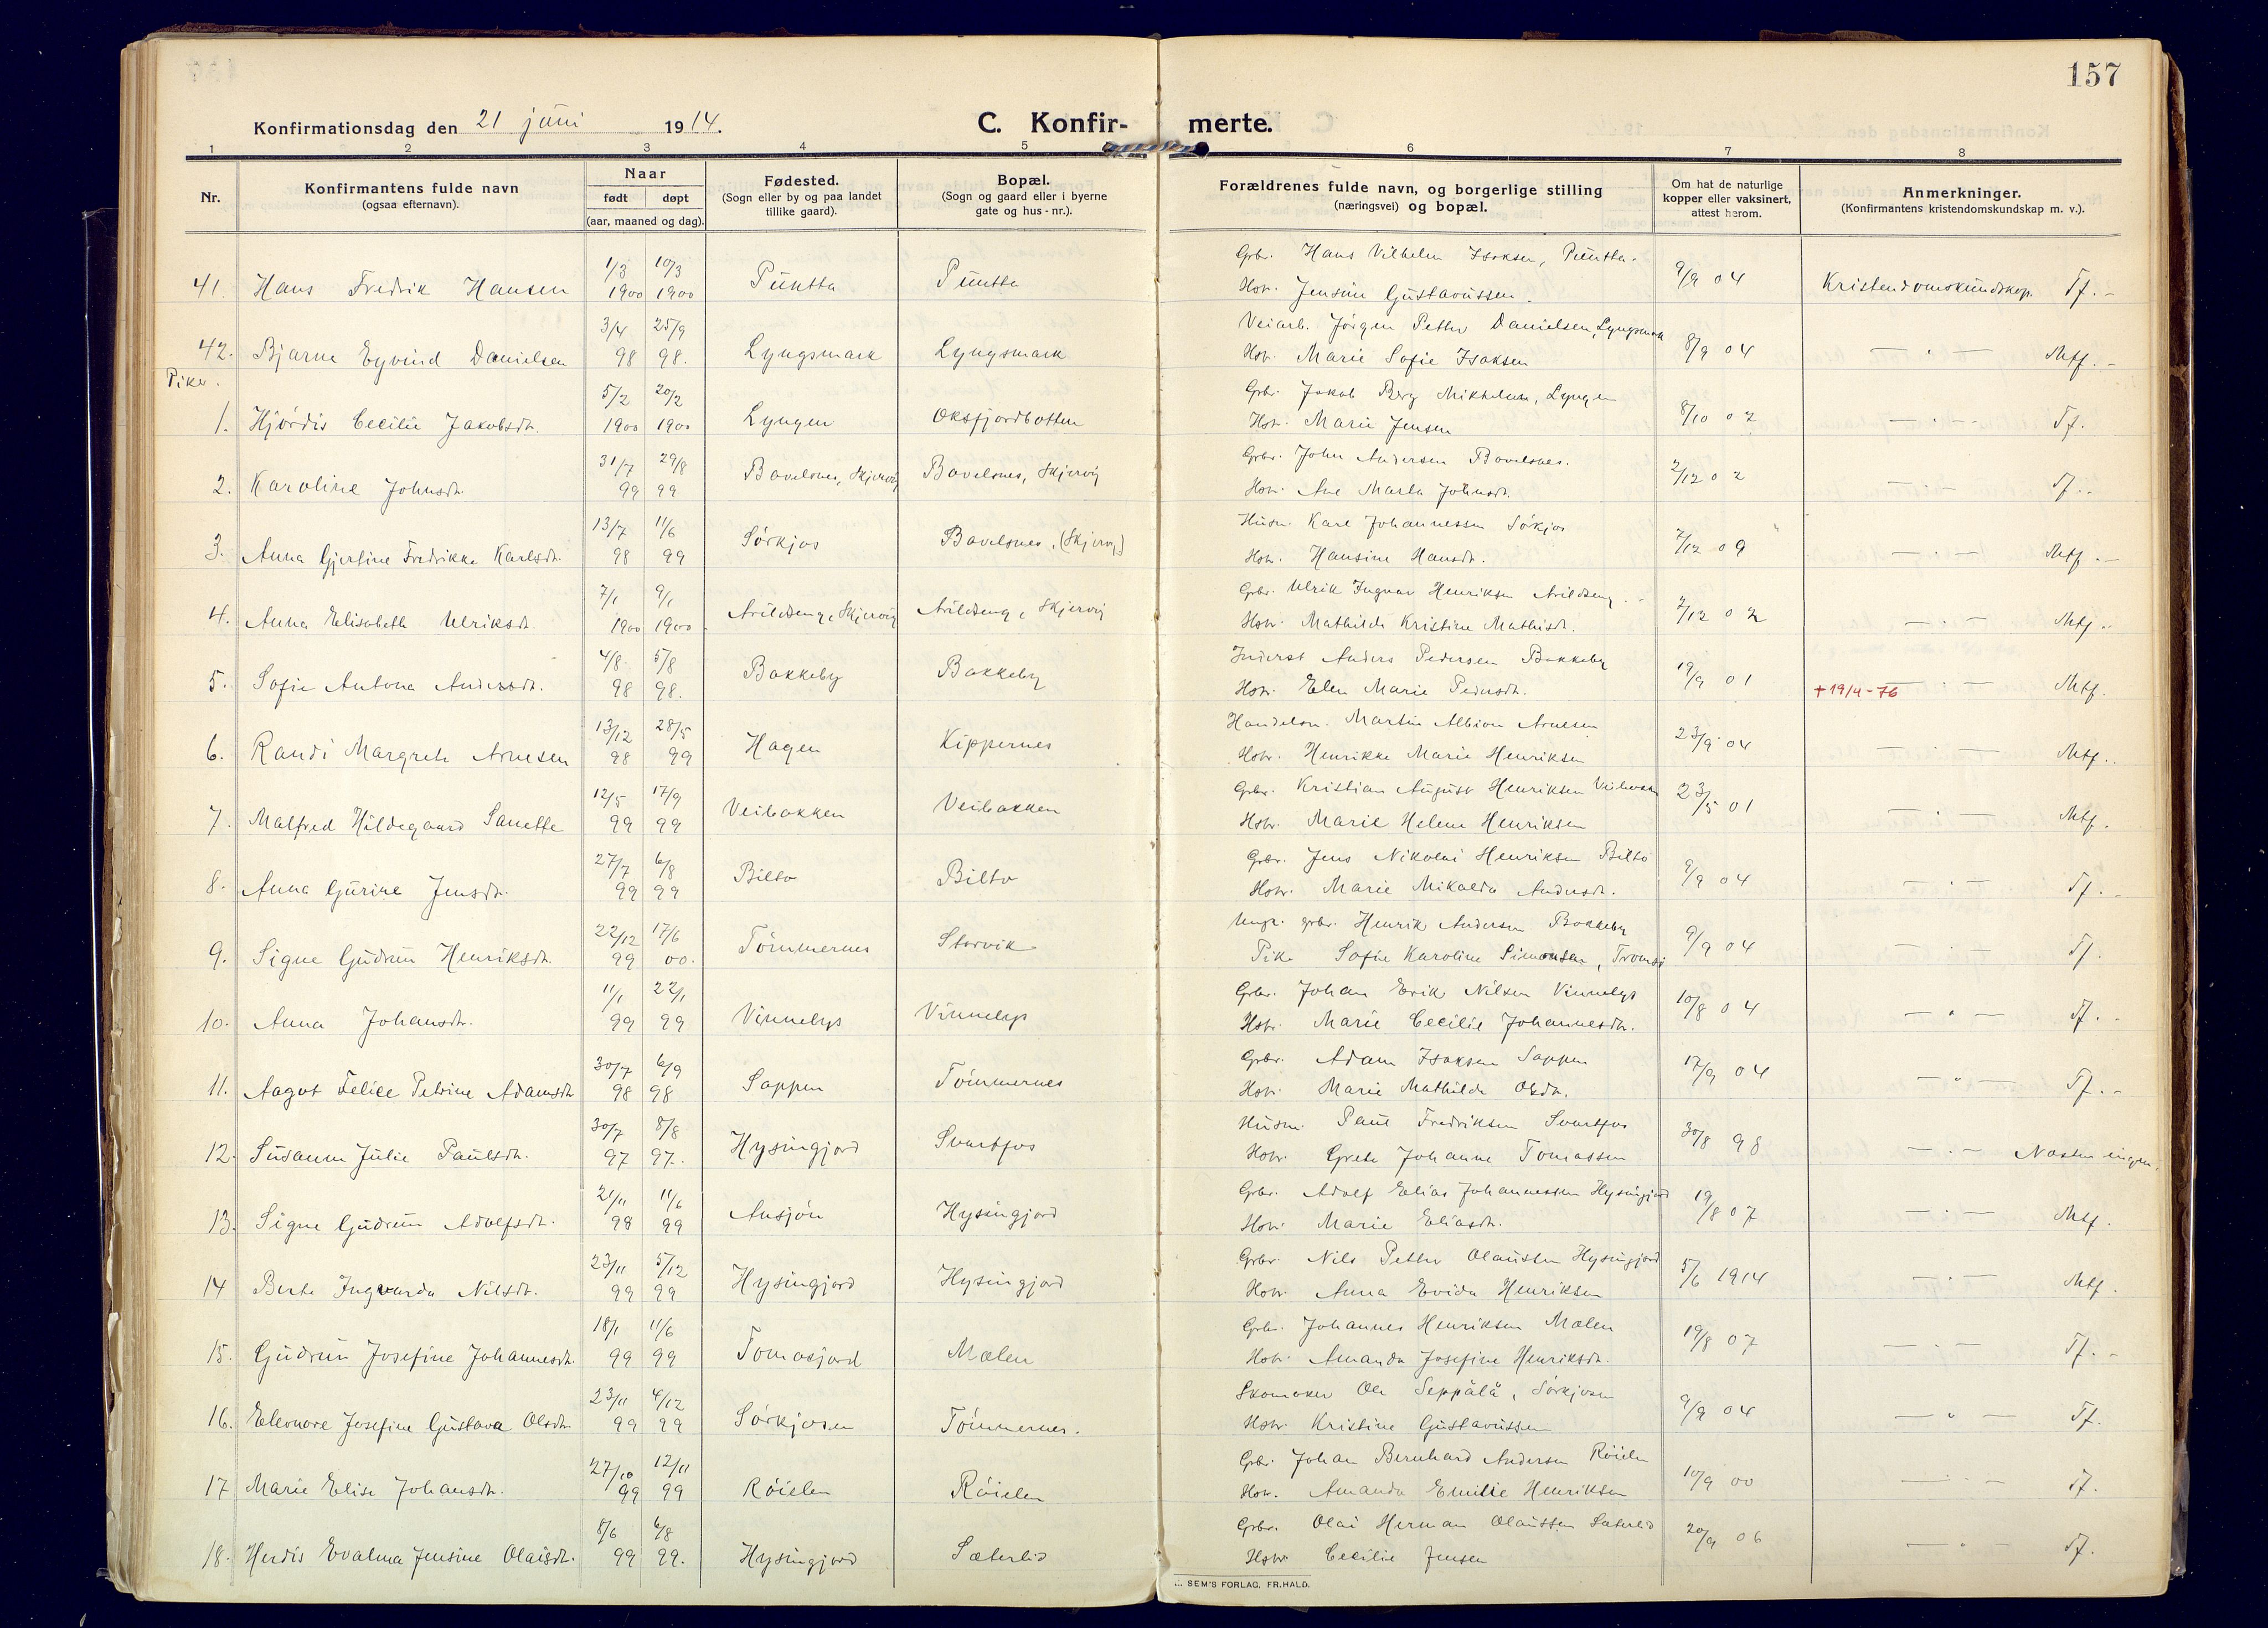 157
Konfirmationsdag den 21 juni 1914.
C. Konfirmerte.
1 2 3 4 5 6 7 8
Nr.
Konfirmantens fulde navn
(ogsaa efternavn).
Naar
født døpt
(aar, maaned og dag).
Fødested.
(Sogn eller by og paa landet
tillike gaard).
Bopæl.
(Sogn og gaard eller i byerne
gate og hus-nr.).
Forældrenes fulde navn, og borgerlige stilling
(næringsvei) og bopæl.
Om hat de naturlige
kopper eller vaksinert,
attest herom.
Anmerkninger.
(Konfirmantens kristendomskundskap m. v.).
1/3 10/3 Gbr. Hans Vilhelm Isaksen, Puntta.
41. Hans Fredrik Hansen 1900 1900 Puntta Puntta Hstr. Jensine Gustavussen. 9/9 04 Kristendomskundskap. Tf. -
3/4 25/9 Veiarb. Jørgen Petter Danielsen, Lyngsmark
42. Bjarne Eyvind Danielsen 98 98. Lyngsmark Lyngsmark Hstr. Marie Sofie Isaksen 8/9 04 — " — Mtf. -
Piker.
5/2 20/2 Gbr. Jakob Berg Mikkelsen, Lyngen
1. Hjørdis Cecilie Jakobsdtr. 1900 1900 Lyngen Oksfjordbotten Hstr. Marie Jensen 8/10 02 — " — Tf.
31/7 29/8 Gbr. John Andersen Bavelsnes.
2. Karoline Johnsdtr. 99 99 Bavelsnes, Skjervøy Bavelsnes, Skjervøy Hstr. Ane Marta Johnsdtr. 2/12 02 — " — Tf. -
13/7 11/6 Husm. Karl Johannessen Sørkjos
3. Anna Gjertine Fredrikke Karlsdtr. 98 99 Sørkjos Bavelsnes, (Skjervøy) Hstr. Hansine Hansdtr. 7/12 09 — " — Mtf. -
7/1 9/1 Gbr. Ulrik Ingvar Henriksen Avildseng.
4. Anna Elisabeth Ulriksdtr. 1900 1900 Avildseng, Skjervøy Avildseng, Skjervøy Hstr. Mathilde Kristine Mathisdtr. 2/12 02 — " — Mtf. -
4/8 5/8 Inderst Anders Pedersen Bakkeby
5. Sofie Antona Andersdtr. 98 98. Bakkeby Bakkeby Hstr. Elen Marie Pedersdtr. 19/9 01 +19/4-76 — " — Mtf.
13/12 28/5 Handelsm. Martin Albion Arnesen
6. Randi Margrete Arnesen 98 99 Hagen Kippernes Hstr. Henrikke Marie Henriksen 23/9 04 — " — Mtf.
12/5 17/9 Gbr. Kristian August Henriksen Veibakken
7. Malfred Hildegaard Sanette 99 99 Veibakken Veibakken Hstr. Marie Helene Henriksen 23/5 01 — " — Mtf.
27/7 6/8 Gbr. Jens Nikolai Henriksen Bilto
8. Anna Gurine Jensdtr. 99 99 Bilto Bilto Hstr. Marie Mikalda Andersdtr. 9/9 04 — " — Tf. -
22/12 17/6 Ungk. gbr. Henrik Andersen Bakkeby
9. Signe Gudrun Henriksdtr. 99 00. Tømmernes Storvik Pike Sofie Karoline Simonsen, Tromsø 9/9 04 — " — Tf.
11/1 22/1 Gbr. Johan Erik Nilsen Vinnelys
10. Anna Johansdtr. 99 99 Vinnelys Vinnelys Hstr. Marie Cecilie Johannesdtr. 10/8 04 — " — Tf. -
30/7 6/9 Gbr. Adam Isaksen Sappen
11. Aagot Felice Petrine Adamsdtr 98 98 Sappen Tømmernes Hstr. Marie Mathilde Olsdtr. 17/9 04 — " — Tf. -
30/7 8/8 Husm. Paul Fredriksen Svartfos
12. Susanna Julie Paulsdtr. 97 97. Hysingjord Svartfos Hstr. Grete Johanne Tomassen 30/8 98 — " — Næsten ingen.
21/11 11/6 Gbr. Adolf Elias Johannessen Hysingjord
13. Signe Gudrun Adolfsdtr. 98 99 Ansjøn Hysingjord Hstr. Marie Eliasdtr. 19/8 07 — " — Mtf.
23/11 5/12 Gbr. Nils Petter Olaussen Hysingjord
14 Berte Ingvarda Nilsdtr. 99 99 Hysingjord Hysingjord Hstr. Anna Evida Henriksen 5/6 1914 — " — Mtf.
18/1 11/6 Gbr. Johannes Henriksen Mælen
15. Gudrun Josefine Johannesdtr. 99 99 Tomasjord Mælen Hstr. Amanda Josefine Henriksdtr. 19/8 07 — " — Tf. -
23/11 4/12 Skomaker Ole Seppälä, Sørkjosen
16. Eleonore Josefine Gustava Olsdtr. 99 99 Sørkjosen Tømmernes. Hstr. Kristine Gustavussen 9/9 04 — " — Tf.
27/10 12/11 Gbr. Johan Bernhard Andersen Røielen
17 Marie Elise Johansdtr. 99 99 Røielen Røielen Hstr. Amanda Emilie Henriksen 10/9 00 — " — Tf.
8/6 6/8 Gbr. Olai Herman Olaussen Sæterlid
18. Herdis Evalma Jensine Olaisdtr. 99 99. Hysingjord Sæterlid Hstr. Cecilie Jensen 20/9 06 — " — Tf.
SEM'S FORLAG, FR.HALD.